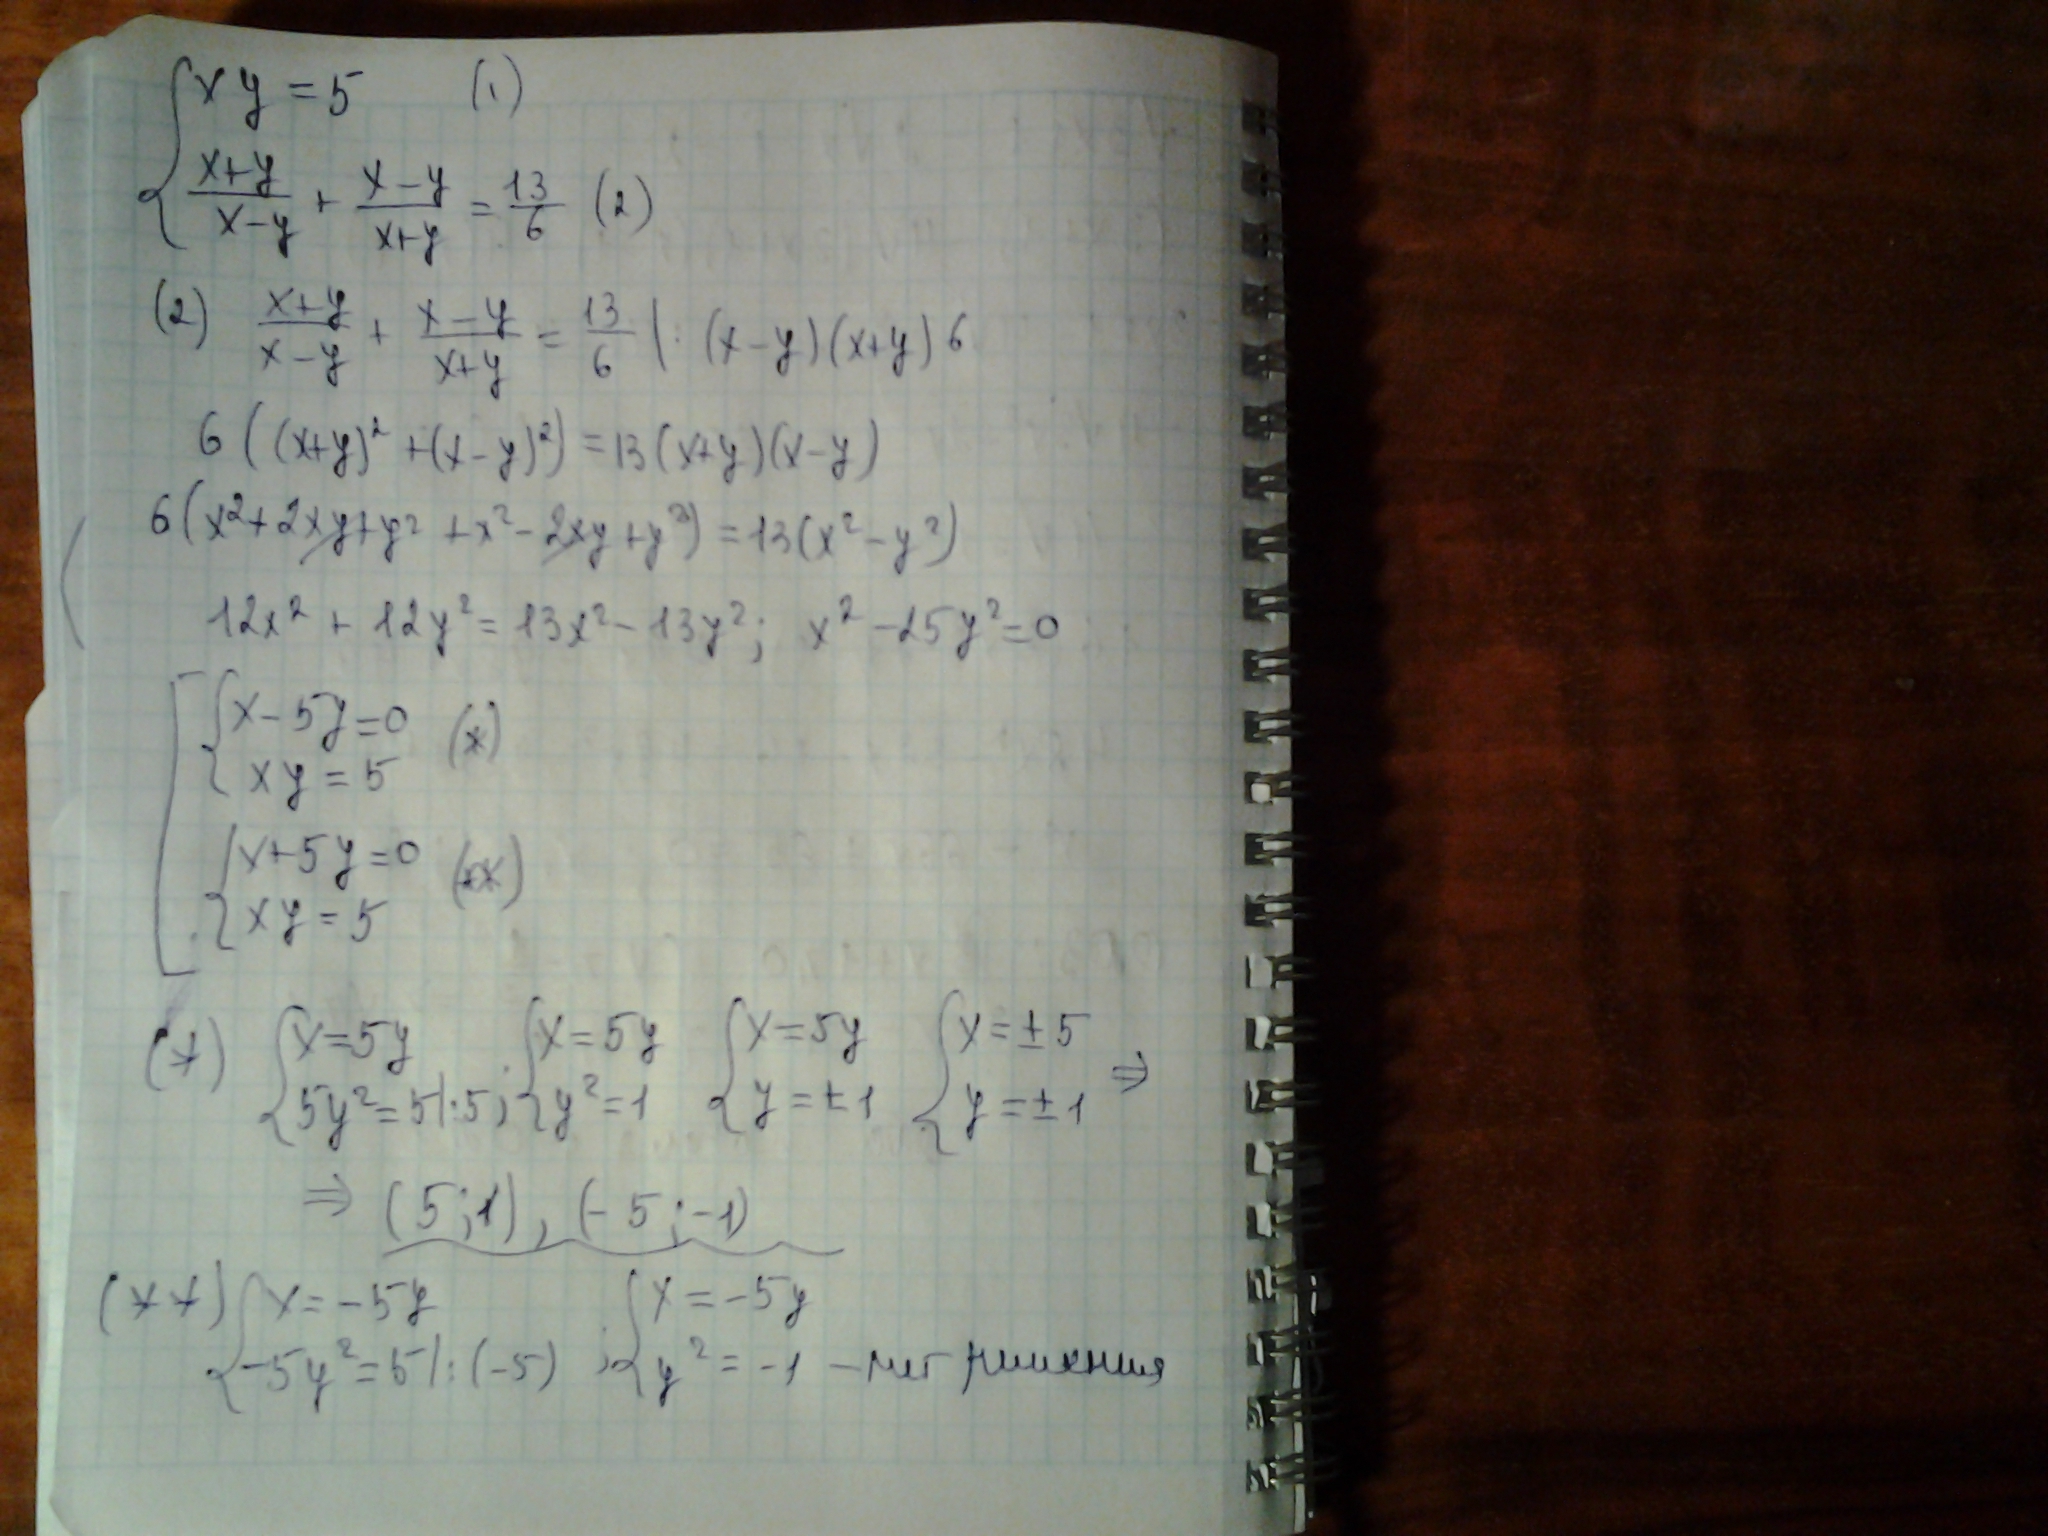 { xy = 5 (1)
{ (x+y)/(x-y) + (x-y)/(x+y) = 13/6 (2)
(2) (x+y)/(x-y) + (x-y)/(x+y) = 13/6 |: (x-y)(x+y) 6
6((x+y)² + (x-y)²) = 13(x+y)(x-y)
6(x² + 2xy + y² + x² - 2xy + y²) = 13(x² - y²)
12x² + 12y² = 13x² - 13y²; x² - 25y² = 0
[ { x - 5y = 0 (*)
{ xy = 5
{ x + 5y = 0 (**)
{ xy = 5
(*) { x = 5y { x = 5y { x = 5y { x = ±5 ⇒
{ 5y² = 5 |:5 ; { y² = 1 { y = ±1 { y = ±1
⇒ (5;1), (-5;-1)
(**) { x = -5y { x = -5y
{ -5y² = 5 |:(-5) ; { y² = -1 – нет решения